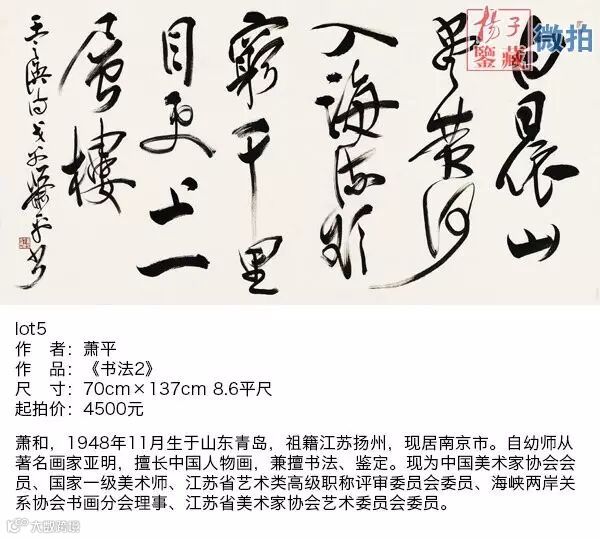 揚子
鑒藏
微拍
白日依山
盡黄河
入海流欲
窮千里
目更上一
層樓
王之渙诗戊子蕭平书
lot5
作　者：萧平
作　品：《书法2》
尺　寸：70cm×137cm 8.6平尺
起拍价：4500元
萧和，1948年11月生于山东青岛，祖籍江苏扬州，现居南京市。自幼师从
著名画家亚明，擅长中国人物画，兼擅书法、鉴定。现为中国美术家协会会
员、国家一级美术师、江苏省艺术类高级职称评审委员会委员、海峡两岸关
系协会书画分会理事、江苏省美术家协会艺术委员会委员。
大数跨境